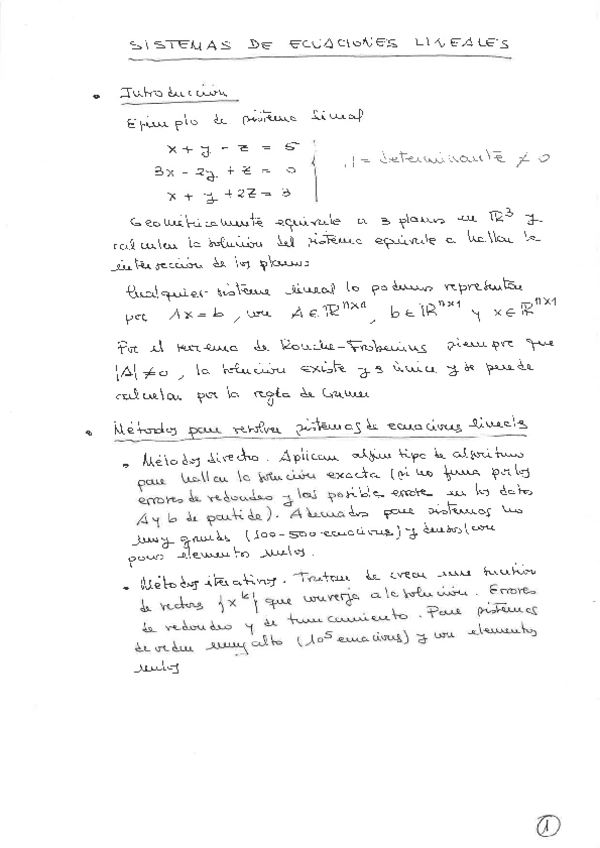 SISTEMAS DE ECUACIONES LINEALES
• Introducción
Ejemplo de sistema lineal
x + y - z = 5
3x - 2y + z = 0
x + y + 2z = 3
| | = determinante ≠ 0
Geométricamente equivale a 3 planos en ℝ³ y
calcular la solución del sistema equivale a hallar la
intersección de los planos
Cualquier sistema lineal lo podemos representar
por Ax = b, con A ∈ ℝⁿˣⁿ, b ∈ ℝⁿˣ¹ y x ∈ ℝⁿˣ¹
Por el teorema de Rouche-Frobenius siempre que
|A| ≠ 0, la solución existe y es única y se puede
calcular por la regla de Cramer
• Métodos para resolver sistemas de ecuaciones lineales
• Métodos directos. Aplican algún tipo de algoritmo
para hallar la solución exacta (si no fuera por los
errores de redondeo y los posibles errores en los datos
A y b de partida). Adecuados para sistemas no
muy grandes (100-500 ecuaciones) y densos (con
pocos elementos nulos.
• Métodos iterativos. Tratan de crear una sucesión
de vectores {xᵏ} que converja a la solución. Errores
de redondeo y de truncamiento. Para sistemas
de orden muy alto (10⁵ ecuaciones) y con elementos
nulos
1